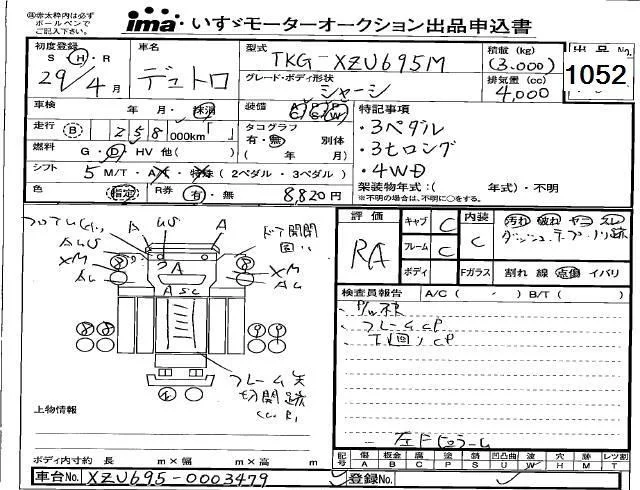 ㊟赤太枠内は必ず
ボールペンで
ご記入下さい。
ima いすゞモーターオークション出品申込書
初度登録
S・H・R
29/4月
車名
デュトロ
型式
TKG-XZU695M
グレード・ボディ形状
シャーシ
積載 (kg)
(3.000)
排気量 (cc)
4,000
出品No.
1052
車検 年・月・抹消
走行 B 258,000km「 」
燃料 G・D・HV 他( )
シフト 5 M/T・A/T・特殊 (2ペダル・3ペダル)
色 指定
R券 有・無 8,820円
装備 A/C P/S P/W
タコグラフ
有・無 別体
( 年 月)
特記事項
・3ペダル
・3tロング
・4WD
架装物年式:( 年式)・不明
※不明の場合は、不明に○をする。
評価
RA
キャブ C
フレーム C
ボディ
内装 C
Fガラス
汚れ 破れ ヤコ スレ
ダッシュ テープノリ跡
割れ 線 点傷 イバリ
検査員報告 A/C ( ・ ) B/T ( )
P/W
フレームCP
下回りCP
左ドピラーム
A US A
AUS
XM
AC
ドア開閉
XM
AC
A
フレーム
切開跡
上物情報
ボディ内寸約 長 m×幅 m×高 m
記号 傷A 板金B 腐C 塗P 錆S 凹凸曲U 波W 穴H 跡M レツ割T
車台No. XZU695-0003479
登録No.